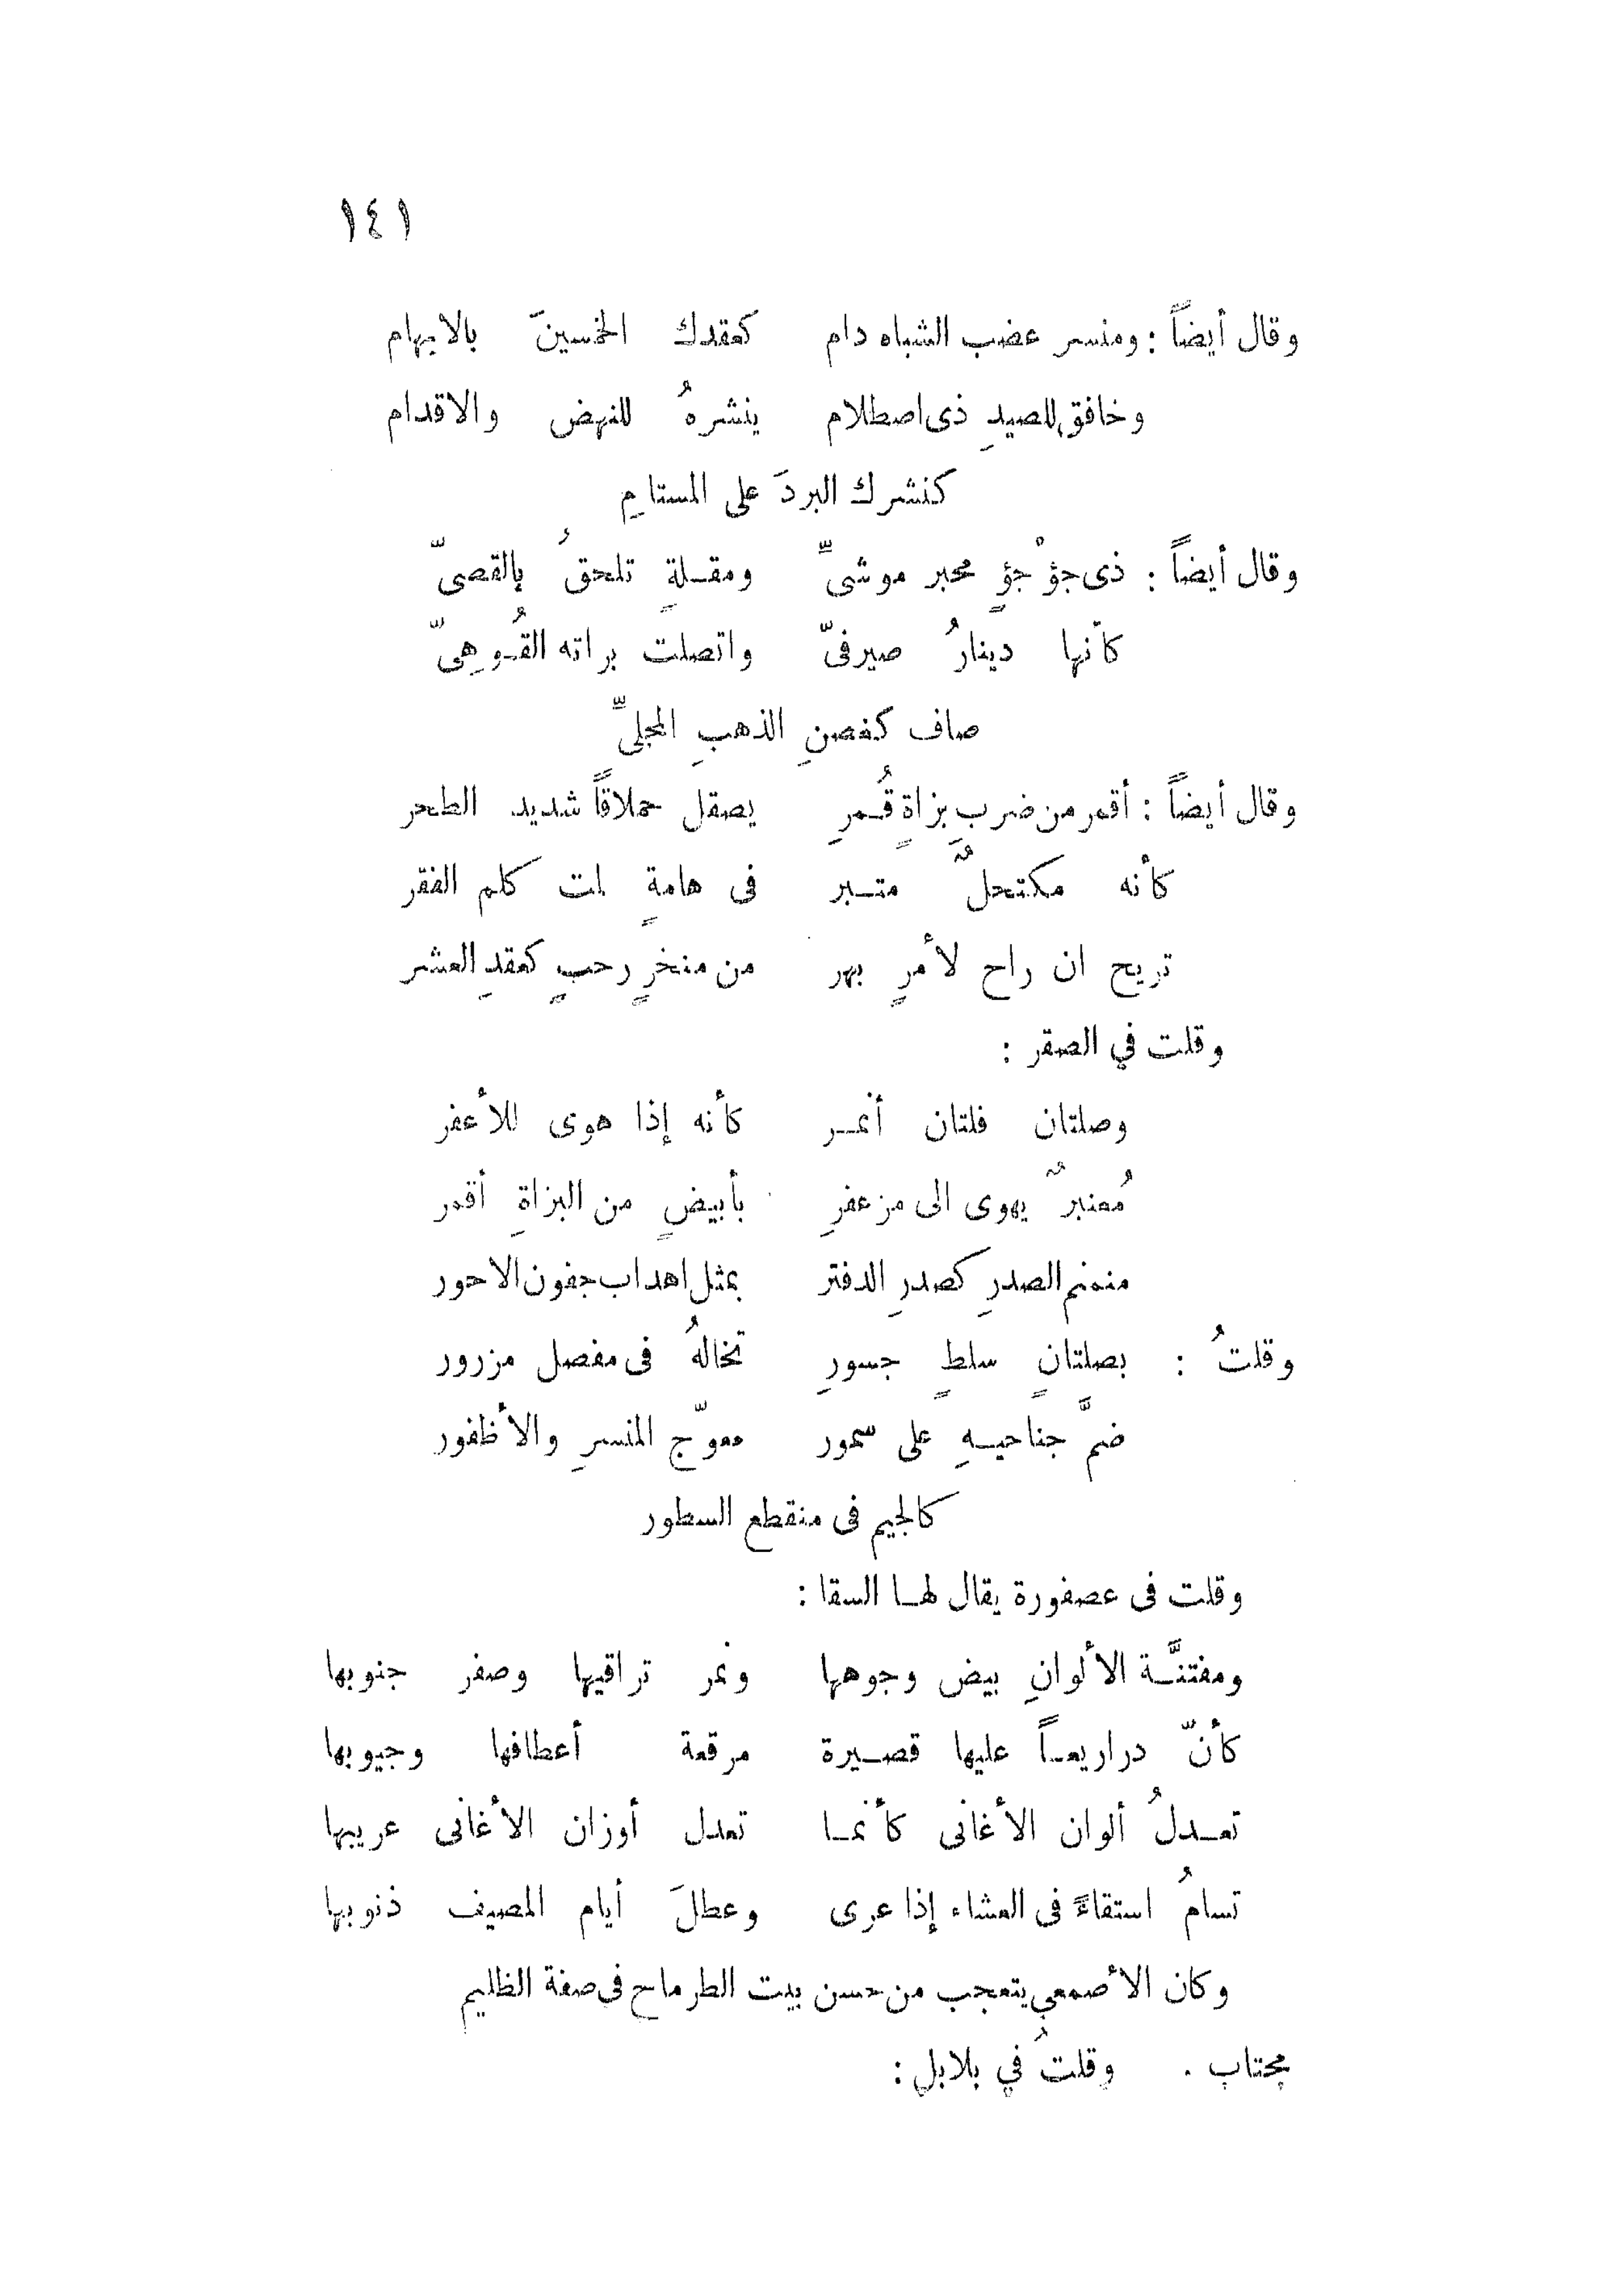 ١٤١
وقال أيضاً : ومنسر عضب الشباه دام كعقدك الخمسينَ بالابهام
وخافق للصيدِ ذى اصطلام ينشرهُ للنهض والاقدام
كنشرك البردَ على المستامِ
وقال أيضاً : ذى جؤْجؤٍ محبر موشىٍّ ومقلةٍ تلحقُ بالقصىّ
كأنها دينارُ صيرفىّ واتصلت براته القُوهِىّ
صاف كغصنِ الذهبِ المجلىٍّ
وقال أيضاً : أقمر من ضربِ بزاةٍ قُمرِ يصقل حملاقاً شديد الطحر
كأنه مكتحلٌ متبر فى هامةٍ لمت كلم الفقر
تريح ان راح لأمرٍ بهر من منخرٍ رحبٍ كعقدِ العشر
وقلت في الصقر :
وصلتان فلتان أنمر كأنه إذا هوى للأعفر
مُعنبرٌ يهوى الى مزعفرِ بأبيضٍ من البزاةِ أقمر
منمنم الصدرِ كصدرِ الدفتر بمثل اهداب جفون الاحور
وقلتُ : بصلتانٍ سلطٍ جسورِ تخالهُ فى مفصل مزرور
ضمَّ جناحيهِ على سمور معوّج المنسرِ والأظفور
كالجيم فى منقطع السطور
وقلت فى عصفورة يقال لها السقا :
ومفتنَّة الألوانِ بيض وجوهها ونمر تراقيها وصفر جنوبها
كأنّ دراريعاً عليها قصيرة مرقعة أعطافها وجيوبها
تعدلُ ألوان الأغانى كأنما تعدل أوزان الأغانى عريبها
تسامُ استقاءً فى العشاء إذا عرى وعطلَ أيام المصيف ذنوبها
وكان الأصمعي يتعجب من حسن بيت الطرماح فى صفة الظليم
مجتاب . وقلتُ في بلابل :